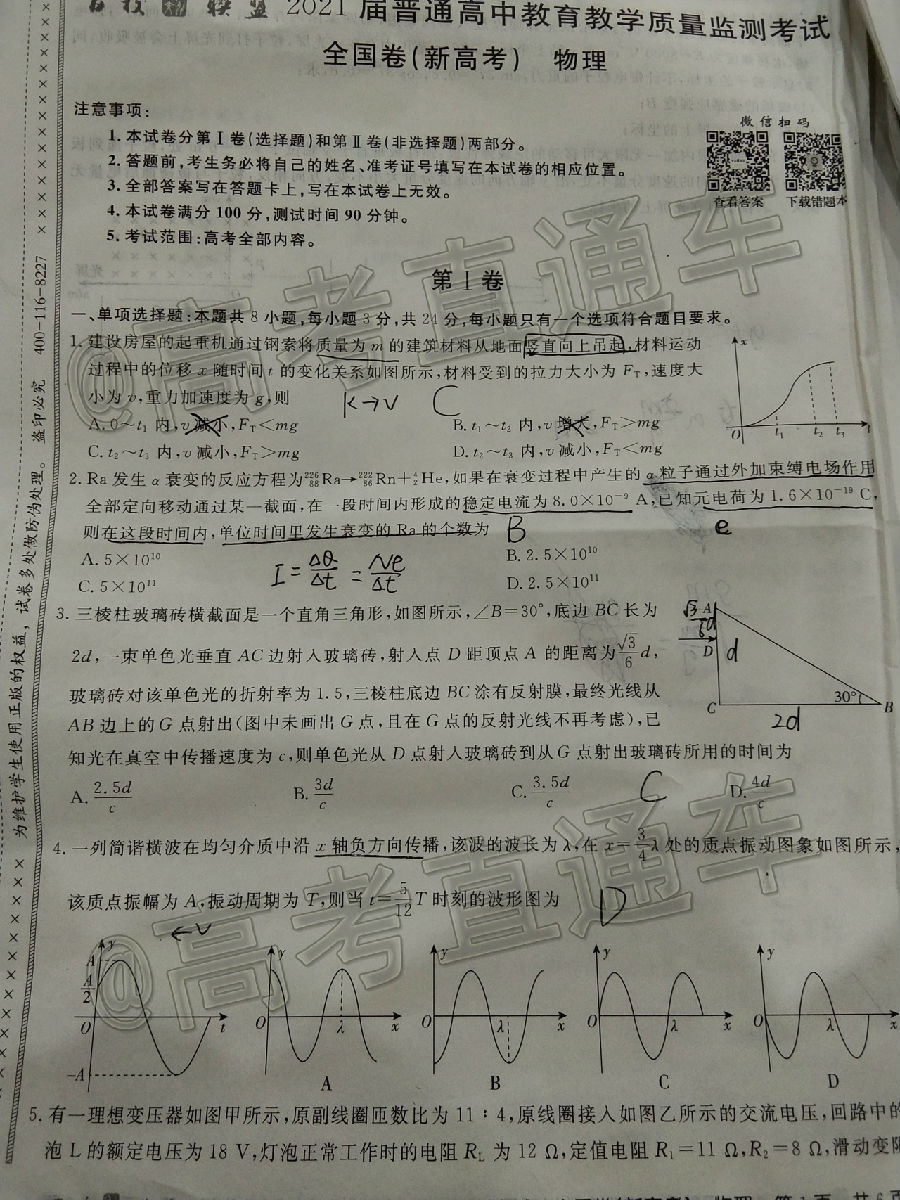 联盟 2021届普通高中教育教学质量监测考试
全国卷(新高考) 物理
注意事项:
1.本试卷分第Ⅰ卷(选择题)和第Ⅱ卷(非选择题)两部分。
2.答题前,考生务必将自己的姓名、准考证号填写在本试卷的相应位置。
3.全部答案写在答题卡上,写在本试卷上无效。
4.本试卷满分100分,测试时间90分钟。
5.考试范围:高考全部内容。
微信扫码
查看答案 下载错题本
第Ⅰ卷
一、单项选择题:本题共8小题,每小题3分,共24分,每小题只有一个选项符合题目要求。
1.建设房屋的起重机通过钢索将质量为m的建筑材料从地面竖直向上吊起,材料运动
过程中的位移x随时间t的变化关系如图所示,材料受到的拉力大小为F_T,速度大
小为v,重力加速度为g,则 K→V C
A.0~t₁内,v减小,F_T<mg B.t₁~t₂内,v增大,F_T>mg
C.t₂~t₃内,v减小,F_T<mg D.t₂~t₃内,v减小,F_T>mg
x
O t₁ t₂ t₃ t
2.Ra发生α衰变的反应方程为²²⁶₈₈Ra→²²²₈₆Rn+⁴₂He,如果在衰变过程中产生的α粒子通过外加束缚电场作用
全部定向移动通过某一截面,在一段时间内形成的稳定电流为8.0×10⁻⁹ A,已知元电荷为1.6×10⁻¹⁹ C,
则在这段时间内,单位时间里发生衰变的Ra的个数为 B e
A.5×10¹⁰ B.2.5×10¹⁰
C.5×10¹¹ D.2.5×10¹¹
I=ΔQ/Δt=Ne/Δt
3.三棱柱玻璃砖横截面是一个直角三角形,如图所示,∠B=30°,底边BC长为
2d,一束单色光垂直AC边射入玻璃砖,射入点D距顶点A的距离为√3/6 d,
玻璃砖对该单色光的折射率为1.5,三棱柱底边BC涂有反射膜,最终光线从
AB边上的G点射出(图中未画出G点,且在G点的反射光线不再考虑),已
知光在真空中传播速度为c,则单色光从D点射入玻璃砖到从G点射出玻璃砖所用的时间为
A.2.5d/c B.3d/c C.3.5d/c C D.4d/c
√3/6 d A
D d
C 2d 30° B
4.一列简谐横波在均匀介质中沿x轴负方向传播,该波的波长为λ,在x=3/4 λ处的质点振动图象如图所示,
该质点振幅为A,振动周期为T,则当t=5/12 T时刻的波形图为 D
←v
y A A/2 O -A t
y O λ x A
y O λ x B
y O λ x C
y O λ x D
5.有一理想变压器如图甲所示,原副线圈匝数比为11:4,原线圈接入如图乙所示的交流电压,回路中的
泡L的额定电压为18 V,灯泡正常工作时的电阻R_L为12 Ω,定值电阻R₁=11 Ω,R₂=8 Ω,滑动变阻
为维护学生使用正版的权益,试卷多处做防伪处理。 盗印必究 400-116-8227
@高考直通车
@高考直通车
@高考直通车